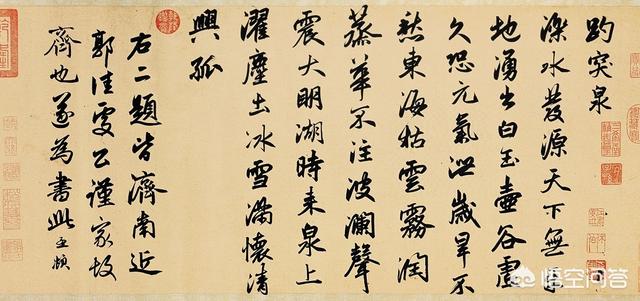 趵突泉
濼水發源天下無平
地湧出白玉壺谷虛
久恐元氣泄歲旱不
愁東海枯雲霧潤
蒸華不注波瀾聲
震大明湖時來泉上
濯塵土冰雪滿懷清
興孤
右二題皆濟南近
郭佳處公謹家故
齊也遂為書此孟頫
悟空问答